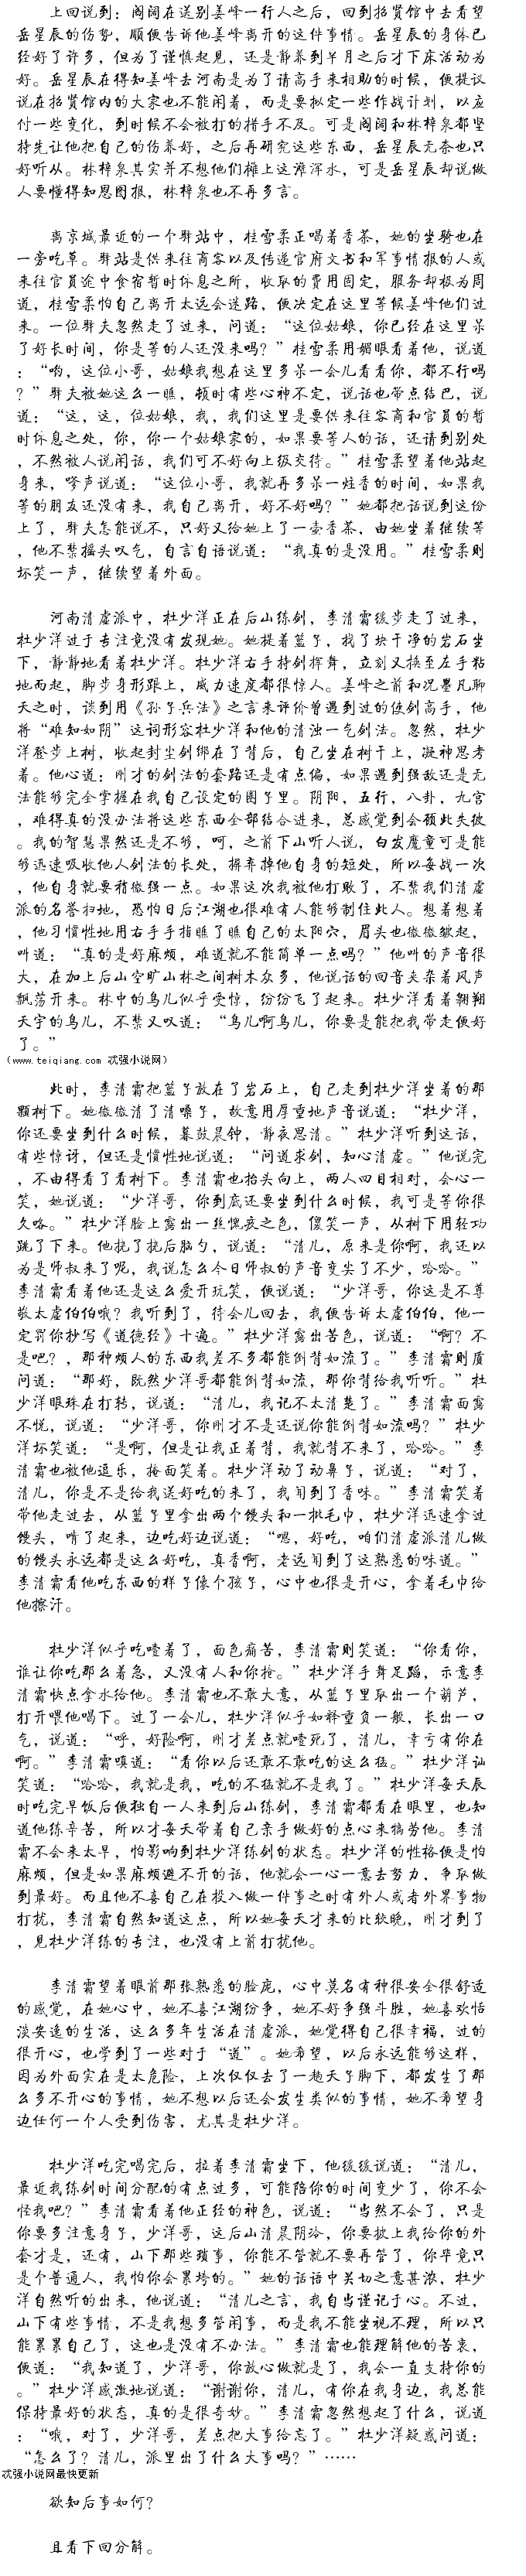 上回说到：阁阔在送别姜峰一行人之后，回到招贤馆中去看望
岳星辰的伤势，顺便告诉他姜峰离开的这件事情。岳星辰的身体已
经好了许多，但为了谨慎起见，还是静养到半月之后才下床活动为
好。岳星辰在得知姜峰去河南是为了请高手来相助的时候，便提议
说在招贤馆内的大家也不能闲着，而是要拟定一些作战计划，以应
付一些变化，到时候不会被打的措手不及。可是阁阔和林梓泉都坚
持先让他把自己的伤养好，之后再研究这些东西，岳星辰无奈也只
好听从。林梓泉其实并不想他们摊上这滩浑水，可是岳星辰却说做
人要懂得知恩图报，林梓泉也不再多言。
离京城最近的一个驿站中，桂雪柔正喝着香茶，她的坐骑也在
一旁吃草。驿站是供来往商客以及传递官府文书和军事情报的人或
来往官员途中食宿暂时休息之所，收取的费用固定，服务却极为周
道，桂雪柔怕自己离开太远会迷路，便决定在这里等候姜峰他们过
来。一位驿夫忽然走了过来，问道：“这位姑娘，你已经在这里呆
了好长时间，你是等的人还没来吗？”桂雪柔用媚眼看着他，说道
：“哟，这位小哥，姑娘我想在这里多呆一会儿看看你，都不行吗
？”驿夫被她这么一瞧，顿时有些心神不定，说话也带点结巴，说
道：“这，这，位姑娘，我，我们这里是要供来往客商和官员的暂
时休息之处，你，你一个姑娘家的，如果要等人的话，还请到别处
，不然被人说闲话，我们可不好向上级交待。”桂雪柔望着他站起
身来，嗲声说道：“这位小哥，我就再多呆一炷香的时间，如果我
等的朋友还没有来，我自己离开，好不好吗？”她都把话说到这份
上了，驿夫怎能说不，只好又给她上了一壶香茶，由她坐着继续等
，他不禁摇头叹气，自言自语说道：“我真的是没用。”桂雪柔则
坏笑一声，继续望着外面。
河南清虚派中，杜少洋正在后山练剑，李清霜缓步走了过来，
杜少洋过于专注竟没有发现她。她提着篮子，找了块干净的岩石坐
下，静静地看着杜少洋。杜少洋右手持剑挥舞，立刻又换至左手粘
地而起，脚步身形跟上，威力速度都很惊人。姜峰之前和况墨凡聊
天之时，谈到用《孙子兵法》之言来评价曾遇到过的使剑高手，他
将“难知如阴”这词形容杜少洋和他的清浊一气剑法。忽然，杜少
洋登步上树，收起封尘剑绑在了背后，自己坐在树干上，凝神思考
着。他心道：刚才的剑法的套路还是有点偏，如果遇到强敌还是无
法能够完全掌握在我自己设定的圈子里。阴阳，五行，八卦，九宫
，难得真的没办法将这些东西全部结合进来，总感觉到会顾此失彼
。我的智慧果然还是不够，呵，之前下山听人说，白发魔童可是能
够迅速吸收他人剑法的长处，摒弃掉他自身的短处，所以每战一次
，他自身就要稍微强一点。如果这次我被他打败了，不禁我们清虚
派的名誉扫地，恐怕日后江湖也很难有人能够制住此人。想着想着
，他习惯性地用右手手指瞧了瞧自己的太阳穴，眉头也微微皱起，
叫道：“真的是好麻烦，难道就不能简单一点吗？”他叫的声音很
大，在加上后山空旷山林之间树木众多，他说话的回音夹杂着风声
飘荡开来。林中的鸟儿似乎受惊，纷纷飞了起来。杜少洋看着翱翔
天宇的鸟儿，不禁又叹道：“鸟儿啊鸟儿，你要是能把我带走便好
了。”
（www.teiqiang.com 忒强小说网）
此时，李清霜把篮子放在了岩石上，自己走到杜少洋坐着的那
颗树下。她微微清了清嗓子，故意用厚重地声音说道：“杜少洋，
你还要坐到什么时候，暮鼓晨钟，静夜思清。”杜少洋听到这话，
有些惊讶，但还是惯性地说道：“问道求剑，知心清虚。”他说完
，不由得看了看树下。李清霜也抬头向上，两人四目相对，会心一
笑，她说道：“少洋哥，你到底还要坐到什么时候，我可是等你很
久咯。”杜少洋脸上露出一丝愧疚之色，傻笑一声，从树下用轻功
跳了下来。他挠了挠后脑勺，说道：“清儿，原来是你啊，我还以
为是师叔来了呢，我说怎么今日师叔的声音变尖了不少，哈哈。”
李清霜看着他还是这么爱开玩笑，便说道：“少洋哥，你这是不尊
敬太虚伯伯哦？我听到了，待会儿回去，我便告诉太虚伯伯，他一
定罚你抄写《道德经》十遍。”杜少洋露出苦色，说道：“啊？不
是吧？，那种烦人的东西我差不多都能倒背如流了。”李清霜则质
问道：“那好，既然少洋哥都能倒背如流，那你背给我听听。”杜
少洋眼珠在打转，说道：“清儿，我记不太清楚了。”李清霜面露
不悦，说道：“少洋哥，你刚才不是还说你能倒背如流吗？”杜少
洋坏笑道：“是啊，但是让我正着背，我就背不来了，哈哈。”李
清霜也被他逗乐，掩面笑着。杜少洋动了动鼻子，说道：“对了，
清儿，你是不是给我送好吃的来了，我闻到了香味。”李清霜笑着
带他走过去，从篮子里拿出两个馒头和一排毛巾，杜少洋迅速拿过
馒头，啃了起来，边吃好边说道：“嗯，好吃，咱们清虚派清儿做
的馒头永远都是这么好吃，真香啊，老远闻到了这熟悉的味道。”
李清霜看他吃东西的样子像个孩子，心中也很是开心，拿着毛巾给
他擦汗。
杜少洋似乎吃噎着了，面色痛苦，李清霜则笑道：“你看你，
谁让你吃那么着急，又没有人和你抢。”杜少洋手舞足蹈，示意李
清霜快点拿水给他。李清霜也不敢大意，从篮子里取出一个葫芦，
打开喂他喝下。过了一会儿，杜少洋似乎如释重负一般，长出一口
气，说道：“呼，好险啊，刚才差点就噎死了，清儿，幸亏有你在
啊。”李清霜嗔道：“看你以后还敢不敢吃的这么猛。”杜少洋讪
笑道：“哈哈，我就是我，吃的不猛就不是我了。”杜少洋每天辰
时吃完早饭后便独自一人来到后山练剑，李清霜都看在眼里，也知
道他练辛苦，所以才每天带着自己亲手做好的点心来犒劳他。李清
霜不会来太早，怕影响到杜少洋练剑的状态。杜少洋的性格便是怕
麻烦，但是如果麻烦避不开的话，他就会一心一意去努力，争取做
到最好。而且他不喜自己在投入做一件事之时有外人或者外界事物
打扰，李清霜自然知道这点，所以她每天才来的比较晚，刚才到了
，见杜少洋练的专注，也没有上前打扰他。
李清霜望着眼前那张熟悉的脸庞，心中莫名有种很安全很舒适
的感觉，在她心中，她不喜江湖纷争，她不好争强斗胜，她喜欢恬
淡安逸的生活，这么多年生活在清虚派，她觉得自己很幸福，过的
很开心，也学到了一些对于“道”。她希望，以后永远能够这样，
因为外面实在是太危险，上次仅仅去了一趟天子脚下，都发生了那
么多不开心的事情，她不想以后还会发生类似的事情，她不希望身
边任何一个人受到伤害，尤其是杜少洋。
杜少洋吃完喝完后，拉着李清霜坐下，他缓缓说道：“清儿，
最近我练剑时间分配的有点过多，可能陪你的时间变少了，你不会
怪我吧？”李清霜看着他正经的神色，说道：“当然不会了，只是
你要多注意身子，少洋哥，这后山清晨阴冷，你要披上我给你的外
套才是，还有，山下那些琐事，你能不管就不要再管了，你毕竟只
是个普通人，我怕你会累垮的。”她的话语中关切之意甚浓，杜少
洋自然听的出来，他说道：“清儿之言，我自当谨记于心。不过，
山下有些事情，不是我想多管闲事，而是我不能坐视不理，所以只
能累累自己了，这也是没有不办法。”李清霜也能理解他的苦衷，
便道：“我知道了，少洋哥，你放心做就是了，我会一直支持你的
。”杜少洋感激地说道：“谢谢你，清儿，有你在我身边，我总能
保持最好的状态，真的是很奇妙。”李清霜忽然想起了什么，说道
：“哦，对了，少洋哥，差点把大事给忘了。”杜少洋疑惑问道：
“怎么了？清儿，派里出了什么大事吗？”……
忒强小说网最快更新
欲知后事如何？
且看下回分解。